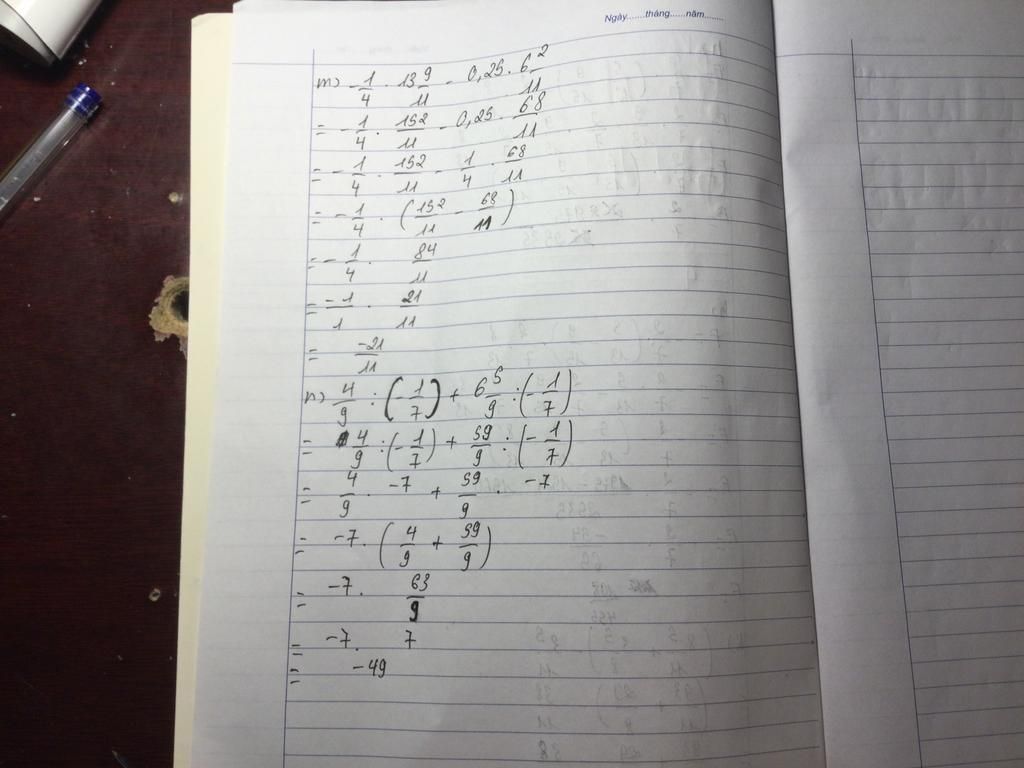 Ngày.......tháng......năm........
m) -1/4 . 13 9/11 - 0,25 . 6 2/11
= -1/4 . 152/11 - 0,25 . 68/11
= -1/4 . 152/11 - 1/4 . 68/11
= -1/4 . (152/11 - 68/11)
= -1/4 . 84/11
= -1/1 . 21/11
= -21/11
n) 4/9 : (-1/7) + 6 5/9 : (-1/7)
= 4/9 : (-1/7) + 59/9 : (-1/7)
= 4/9 . -7 + 59/9 . -7
= -7 . (4/9 + 59/9)
= -7 . 63/9
= -7 . 7
= -49